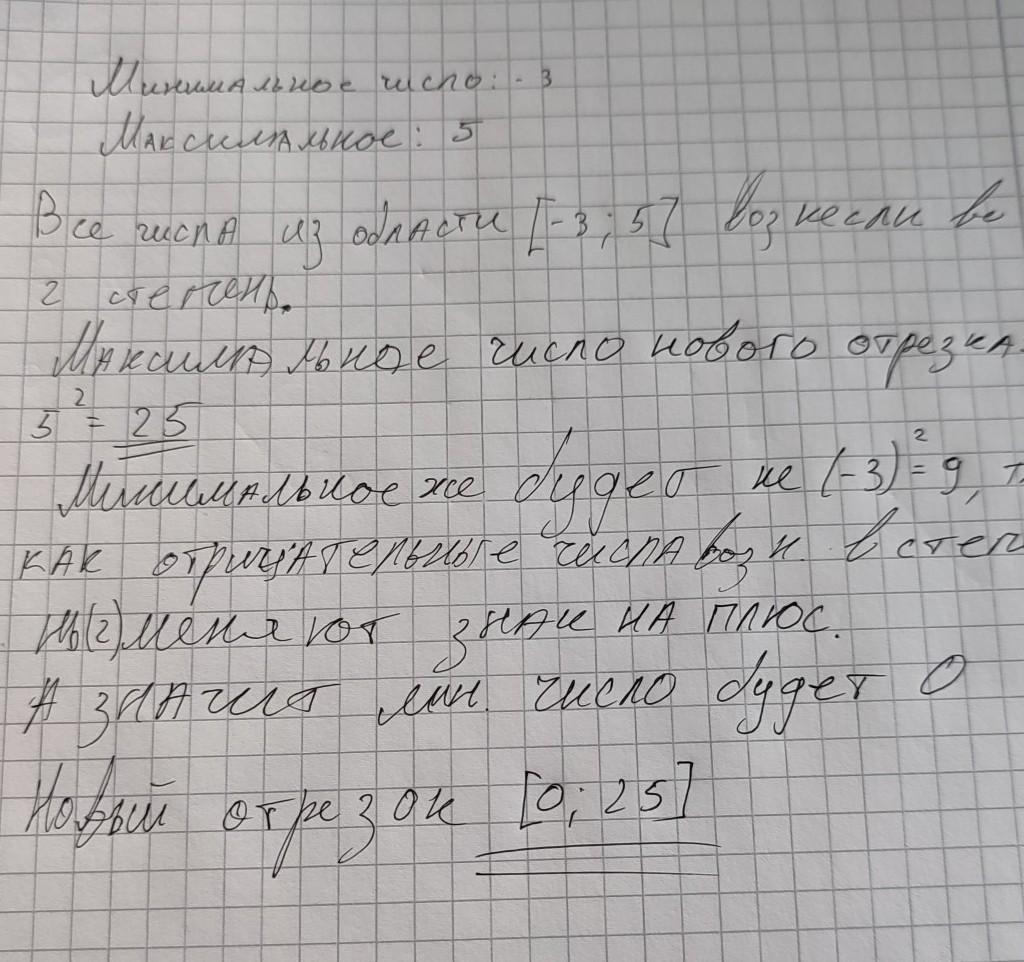 Минимальное число: -3
Максимальное: 5
Все числа из области [-3; 5] возвесли во
2 степень.
Максимальное число нового отрезка
5² = 25
Минимальное же будет не (-3)² = 9, т.
как отрицательные числа возв. в степ
нь(2) меняют знак на плюс.
А значит мин. число будет 0
Новый отрезок [0; 25]